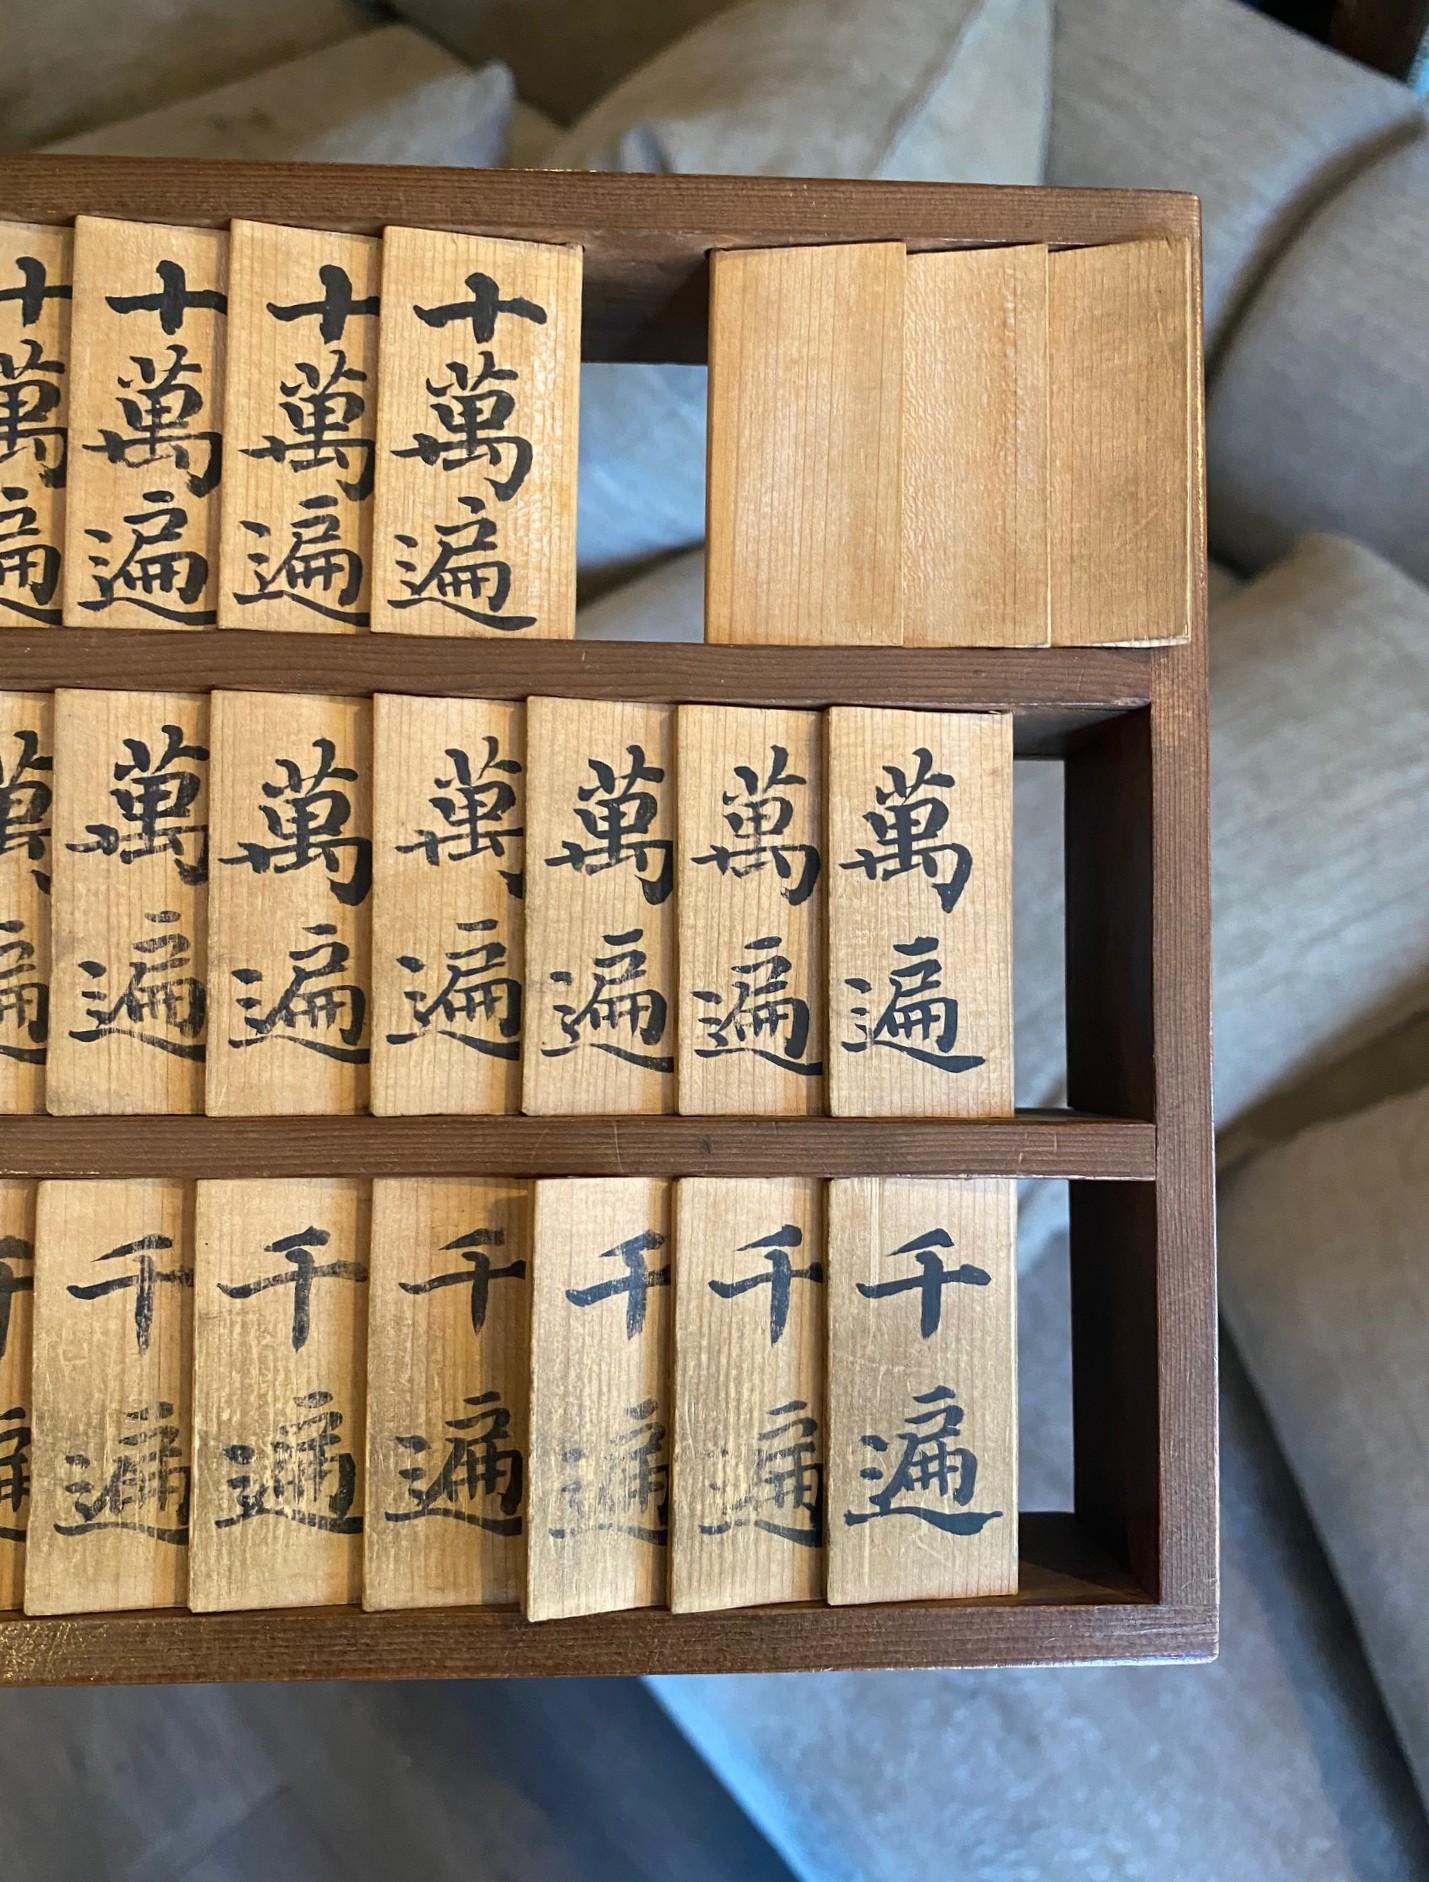 十萬遍
十萬遍
十萬遍
十萬遍
萬遍
萬遍
萬遍
萬遍
萬遍
萬遍
萬遍
千遍
千遍
千遍
千遍
千遍
千遍
千遍